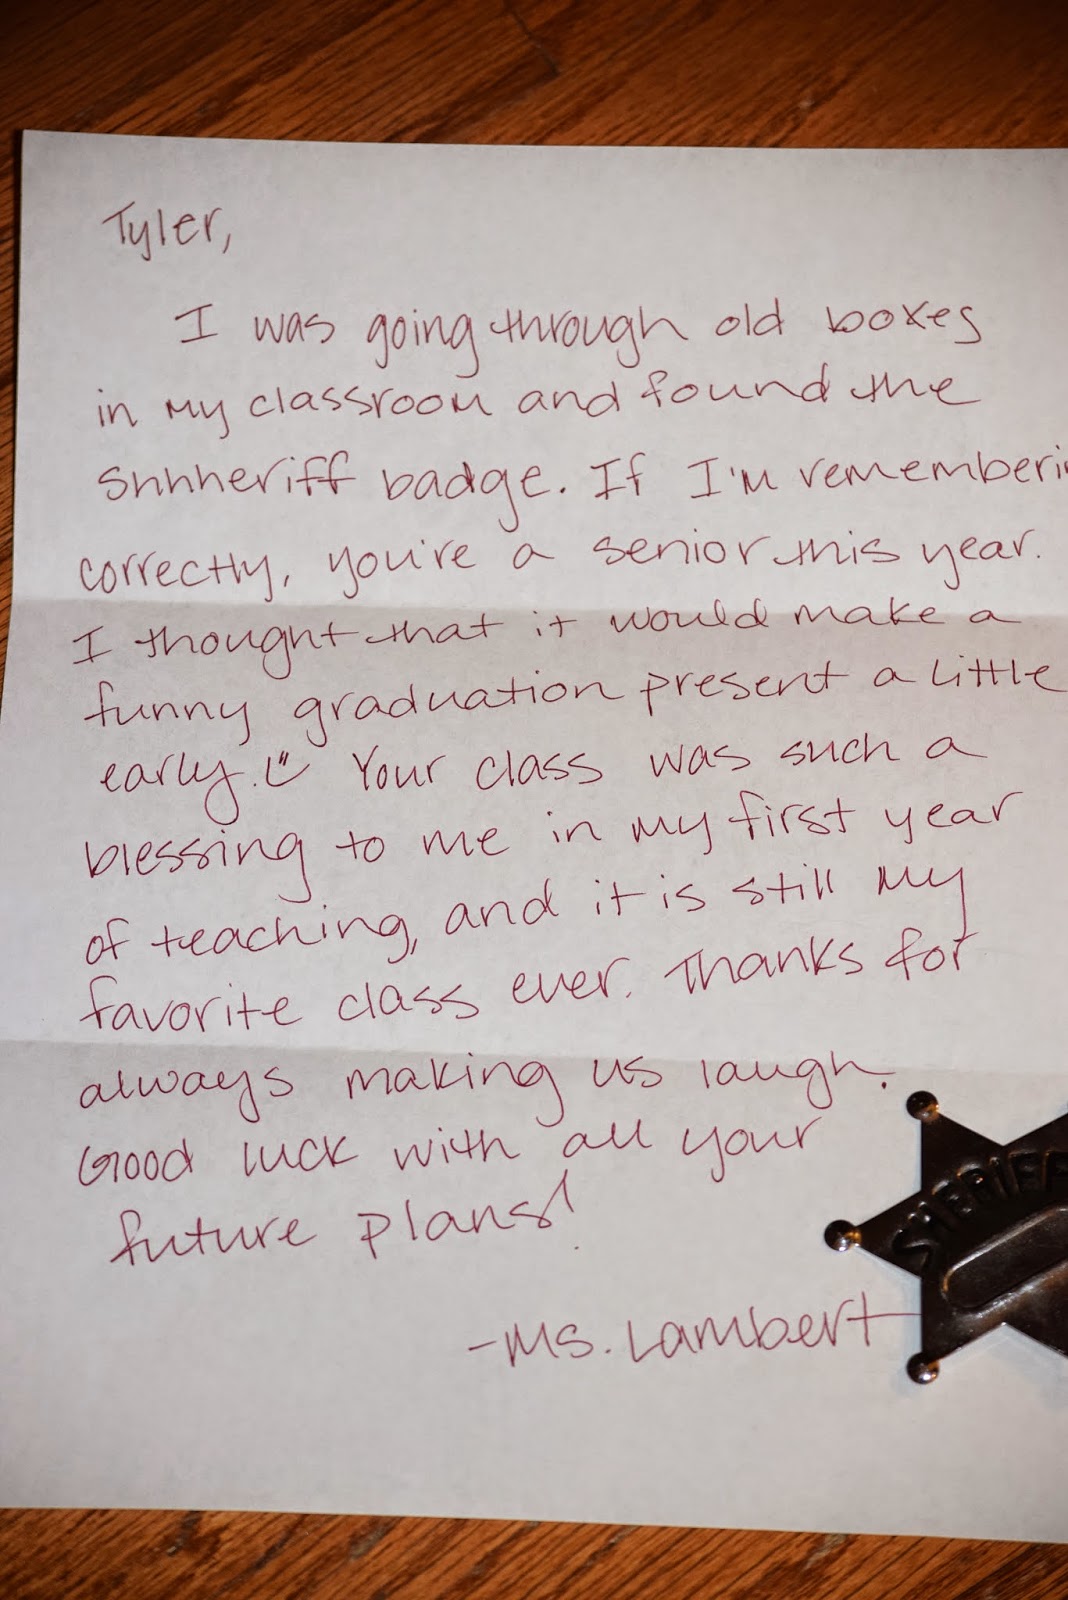 Tyler,
I was going through old boxes
in my classroom and found the
Shhheriff badge. If I'm rememberin
correctly, you're a senior this year.
I thought that it would make a
funny graduation present a little
early. Your class was such a
blessing to me in my first year
of teaching, and it is still my
favorite class ever. Thanks for
always making us laugh.
Good luck with all your
future plans!
-Ms. Lambert
SHERIFF